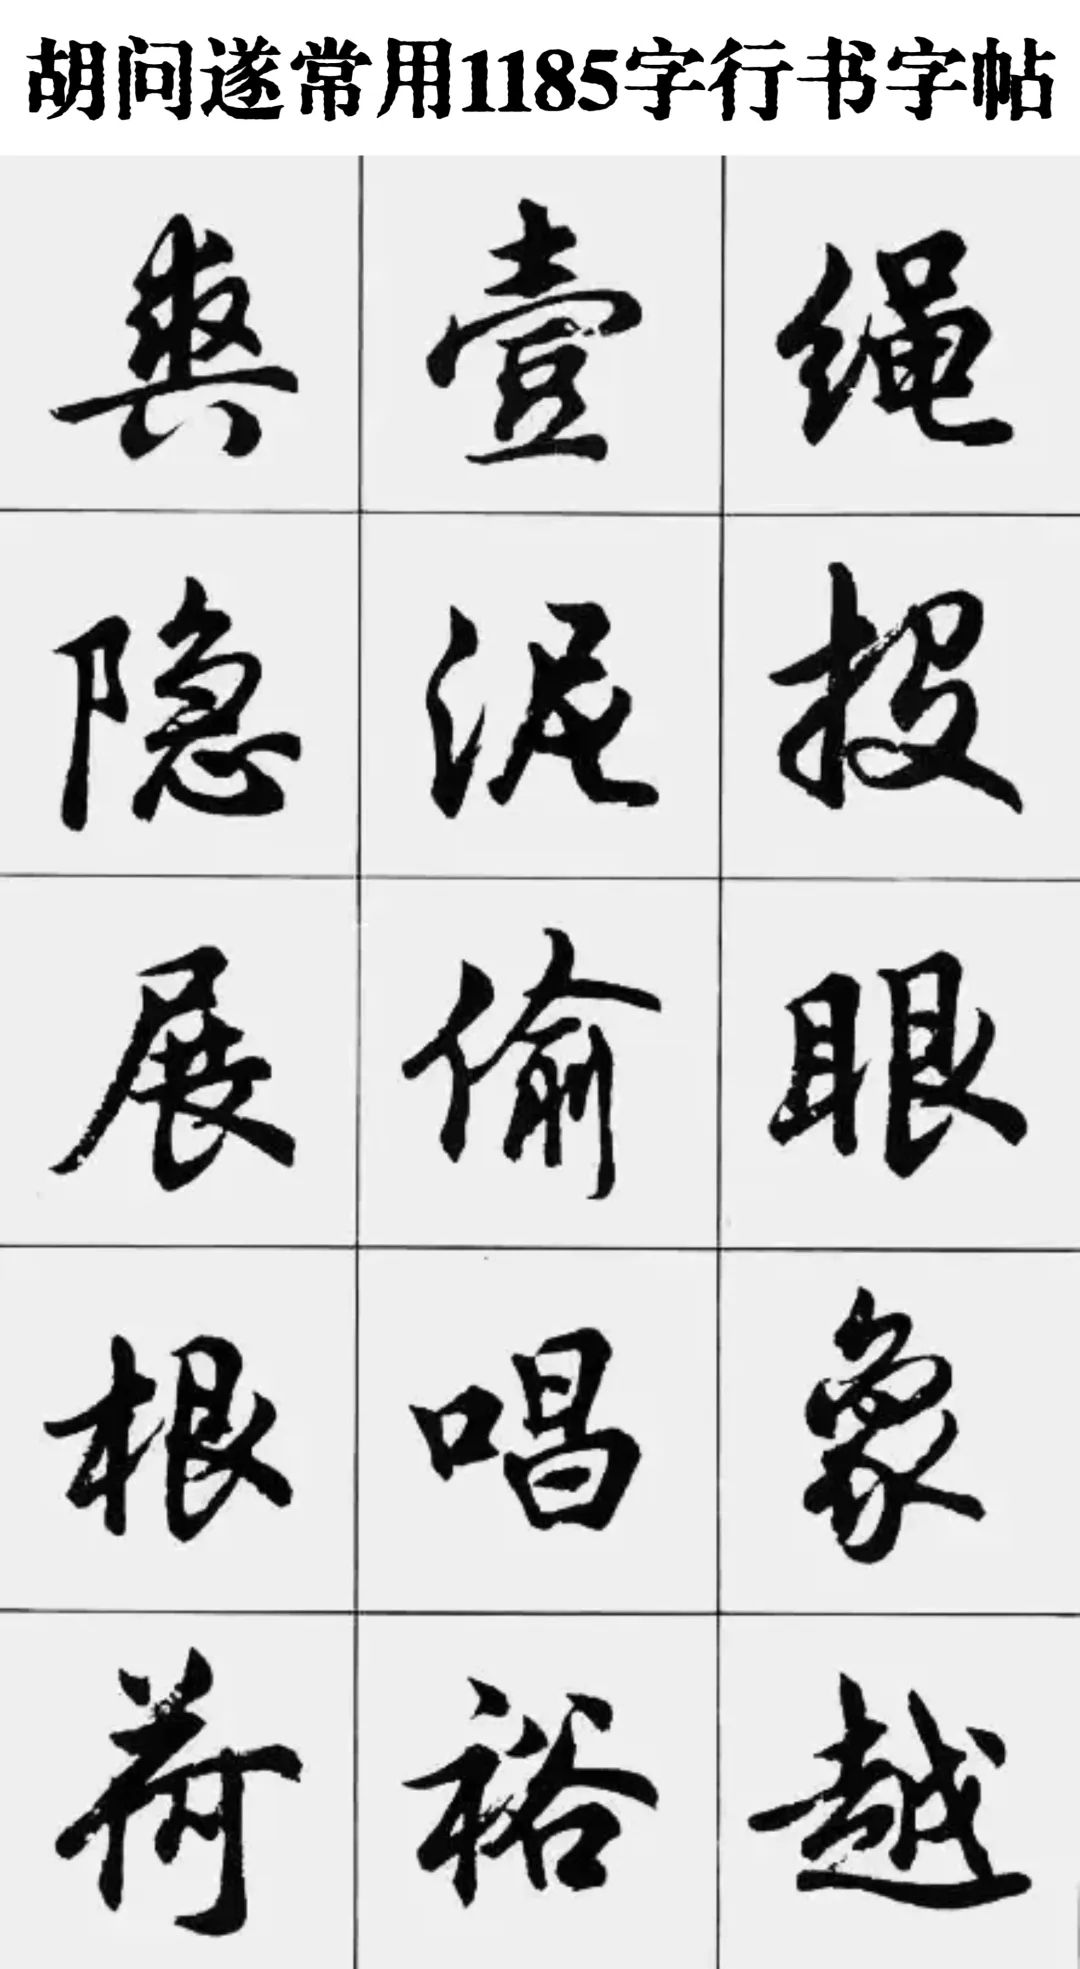 胡问遂常用1185字行书字帖
壹 绳
隐 泥 投
展 偷 眼
根 唱 象
荷 裕 越